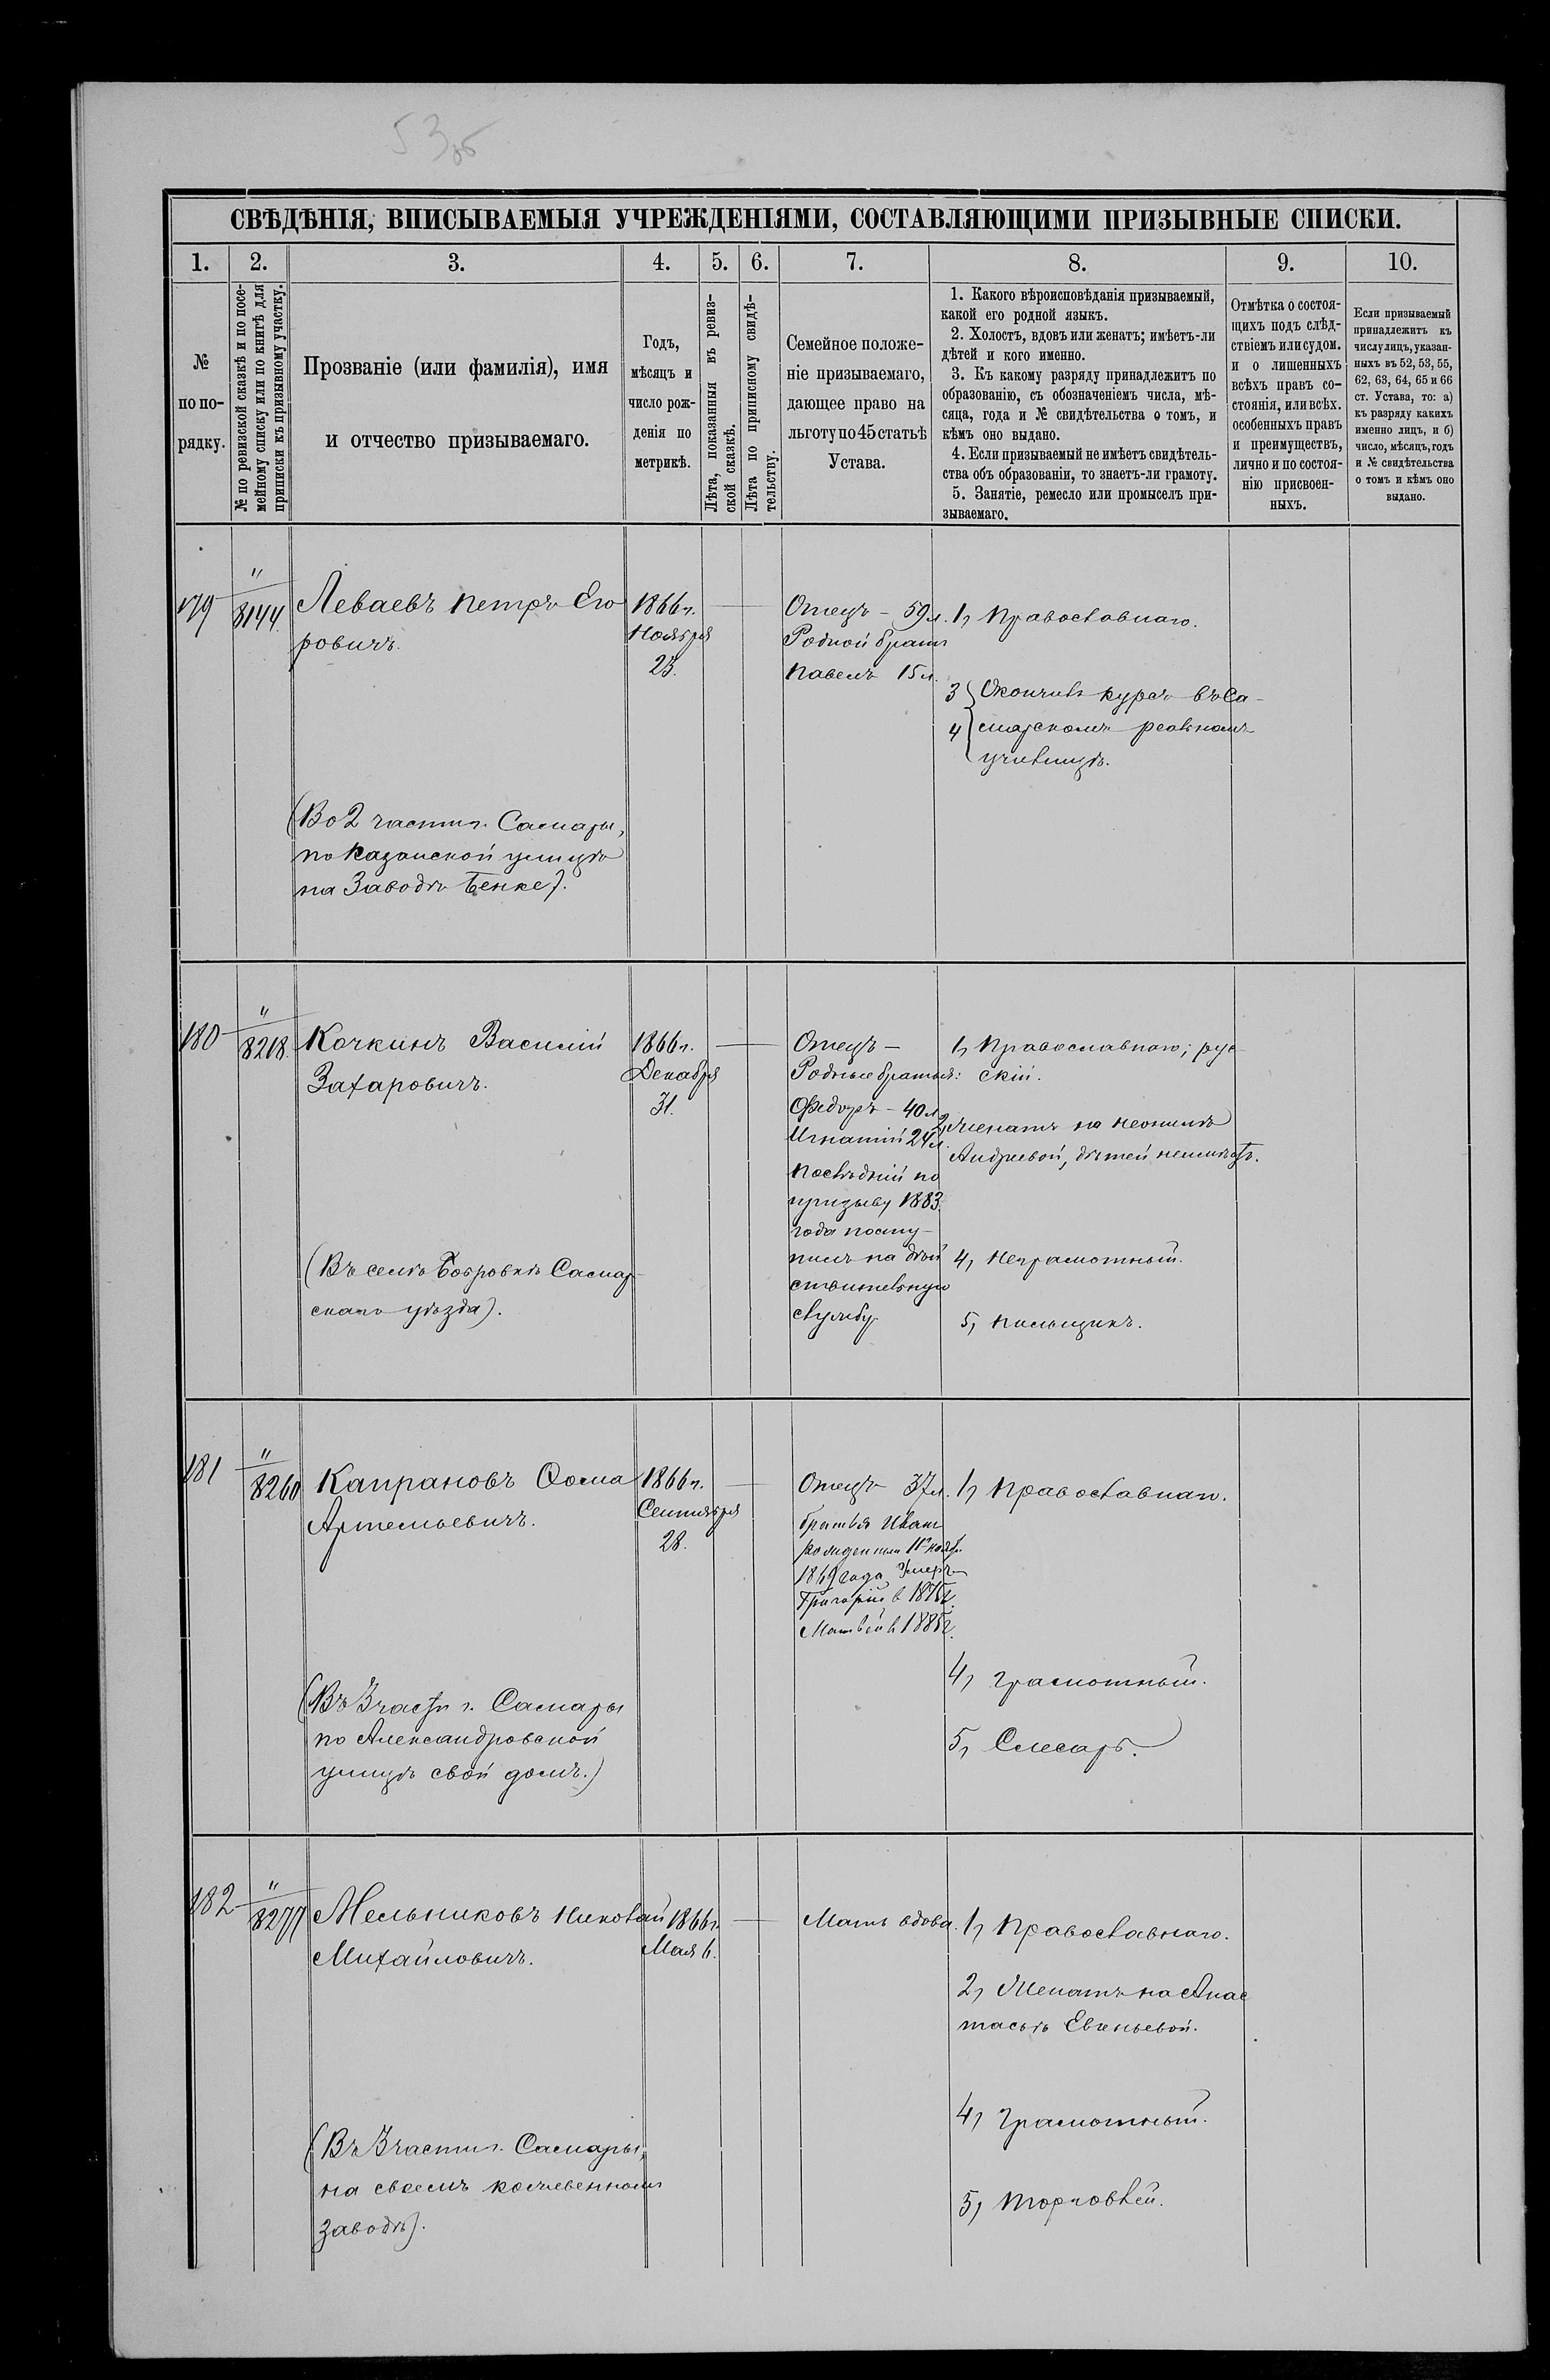 53об
СВѢДѢНІЯ, ВПИСЫВАЕМЫЯ УЧРЕЖДЕНІЯМИ, СОСТАВЛЯЮЩИМИ ПРИЗЫВНЫЕ СПИСКИ.
1. 2. 3. 4. 5. 6. 7. 8. 9. 10.
№
по по-
рядку.
№ по ревизской сказкѣ и по посе-
мейному списку или по книгѣ для
приписки къ призывному участку.
Прозваніе (или фамилія), имя
и отчество призываемаго.
Годъ,
мѣсяцъ и
число рож-
денія по
метрикѣ.
Лѣта, показанныя въ ревиз-
ской сказкѣ.
Лѣта по приписному свидѣ-
тельству.
Семейное положе-
ніе призываемаго,
дающее право на
льготу по 45 статьѣ
Устава.
1. Какого вѣроисповѣданія призываемый,
какой его родной языкъ.
2. Холостъ, вдовъ или женатъ; имѣетъ-ли
дѣтей и кого именно.
3. Къ какому разряду принадлежитъ по
образованію, съ обозначеніемъ числа, мѣ-
сяца, года и № свидѣтельства о томъ, и
кѣмъ оно выдано.
4. Если призываемый не имѣетъ свидѣтель-
ства объ образованіи, то знаетъ-ли грамоту.
5. Занятіе, ремесло или промыселъ при-
зываемаго.
Отмѣтка о состоя-
щихъ подъ слѣд-
ствіемъ или судом.
и о лишенныхъ
всѣхъ правъ со-
стоянія, или всѣх.
особенныхъ правъ
и преимуществъ,
лично и по состоя-
нію присвоен-
ныхъ.
Если призываемый
принадлежитъ къ
числу лицъ, указан-
ныхъ въ 52, 53, 55,
62, 63, 64, 65 и 66
ст. Устава, то: а)
къ разряду какихъ
именно лицъ, и б)
число, мѣсяцъ, годъ
и № свидѣтельства
о томъ и кѣмъ оно
выдано.
179
"
8144.
Леваевъ Петръ Его
ровичъ.
(Во 2 части г. Самары,
по Казанской улицѣ
на Заводѣ Бенке).
1866 г.
Ноября
23.
Отецъ – 59 л.
Родной братъ
Павелъ 15 л.
1, Православнаго.
3 Окончилъ курсъ въ Са-
4 марскомъ реальномъ
училищѣ.
180
"
8218.
Кочкинъ Василій
Захаровичъ.
(Въ селѣ Бобровкѣ Самар-
скаго уѣзда).
1866 г.
Декабря
31.
Отецъ –
Родные братья:
Ѳедоръ – 40 л.
Игнатій 24 л.
Послѣдній по
призыву 1883
года посту-
пилъ на дѣй
ствительную
службу
1, Православнаго; рус
скій.
2, Женатъ на Неонилѣ
Андреевой, дѣтей неимѣетъ.
4, Неграмотный.
5, Пильщикъ.
181
"
8260
Капрановъ Ѳома
Артемьевичъ.
(Въ 3 части г. Самары
по Александровской
улицѣ свой домъ.)
1866 г.
Сентября
28.
Отецъ 37 л.
братья Иванъ
рожденный 11го нояб.
1869 года Умерл
Григорій в 1875 г.
Матвѣй в 1885 г.
1, Православнаго.
4, Грамотный.
5, Слесарь.
182
"
8277
Мельниковъ Николай
Михайловичъ.
(Въ 3 части г. Самары,
на своемъ кожевенномъ
заводѣ).
1866 г.
Мая 6.
Мать вдова.
1, Православнаго.
2, Женатъ на Анас
тасьѣ Евгеньевой.
4, Грамотный.
5, Торговлей.